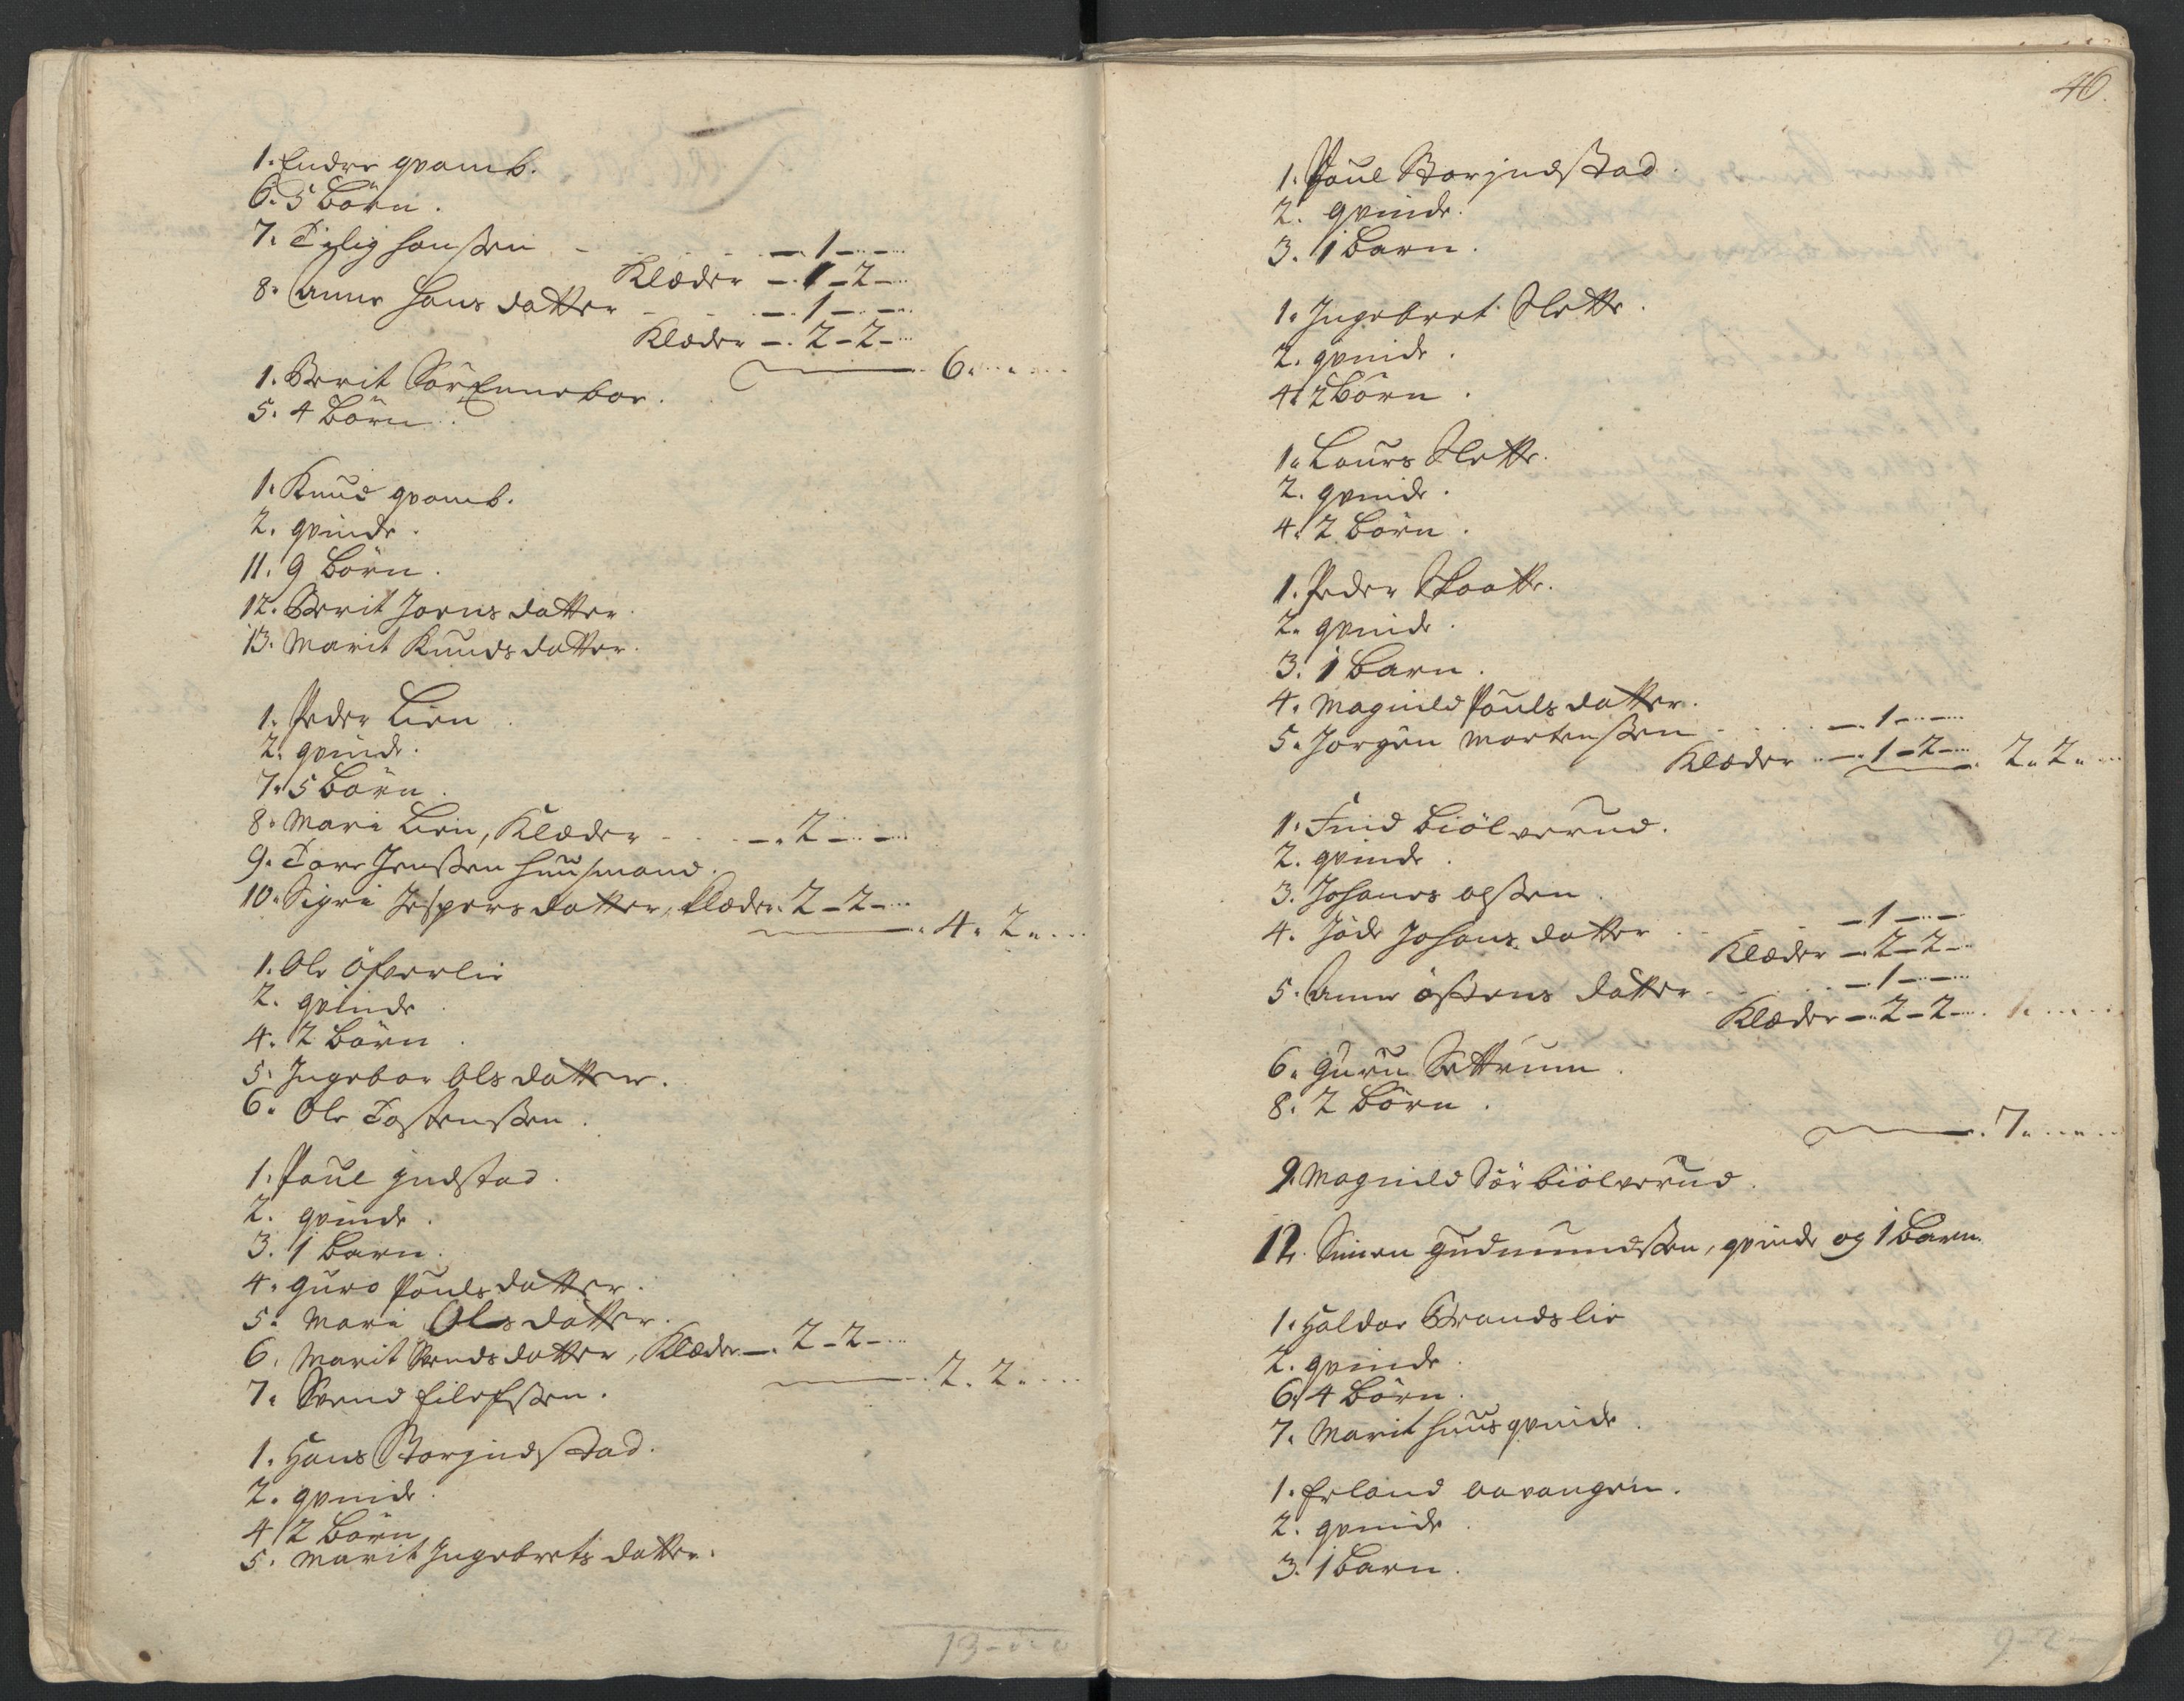 1. Endre qvamb.
6. 5 Börn.
7. Tylig hanssen - - 1 - -
Klæder - 1 - 2 -
8. Anne Hans datter - - 1 - -
Klæder - 2 - 2 -
6.
1. Berit Sör Ennebor.
5. 4 Börn.
1. Knud qvamb.
2. qvinde.
11. 9 Börn.
12. Berit Joens datter.
13. Marit Knuds datter.
1. Peder Lien.
2. qvinde.
7. 5 Börn.
8. Mari Lien, Klæder - - 2 - -
9. Tore Jenssen huusmand.
10. Sigri Jespers datter, klæder. 2 - 2 -
4. 2.
1. Ole Öfverlie
2. qvinde
4. 2 Börn.
5. Ingebor Ols datter.
6. Ole Tostenssen.
1. Poul gudstad.
2. qvinde.
3. 1 Barn.
4. Guro Pouls datter.
5. Mari Ols datter.
6. Marit Svends datter, Klæder - 2 - 2 -
7. Svend Eilefssen. 2. 2.
1. Hans Borgudstad.
2. qvinde.
4. 2 Börn
5. Marit Ingebrets datter.
13 - 0 - 0
46.
1. Poul Borgudstad.
2. qvinde.
3. 1 Barn.
1. Ingebret Slette.
2. qvinde.
4. 2 Börn.
1. Lours Slette.
2. qvinde.
4. 2 Börn.
1. Peder Skaatte.
2. qvinde.
3. 1 Barn.
4. Magnild Pouls datter.
5. Jorgen Mortenssen - 1 - -
Klæder - 1 - 2 - 2. 2.
1. Find Biölverud.
2. qvinde.
3. Johanes olssen.
4. Jöde Johans datter - 1 - -
Klæder - 2 - 2 -
5. Anne östens datter - 1 - -
Klæder - 2 - 2 -
6. Guru Settrum.
8. 2 Börn.
7.
9. Magnild Sör biölverud.
12. Simen gudmundssen, qvinde og 1 Barn.
1. Haldor Brandslie
2. qvinde.
6. 4 Börn.
7. Marit huusqvinde.
1. Erland aavangen.
2. qvinde.
3. 1 Barn.
9 - 2 -